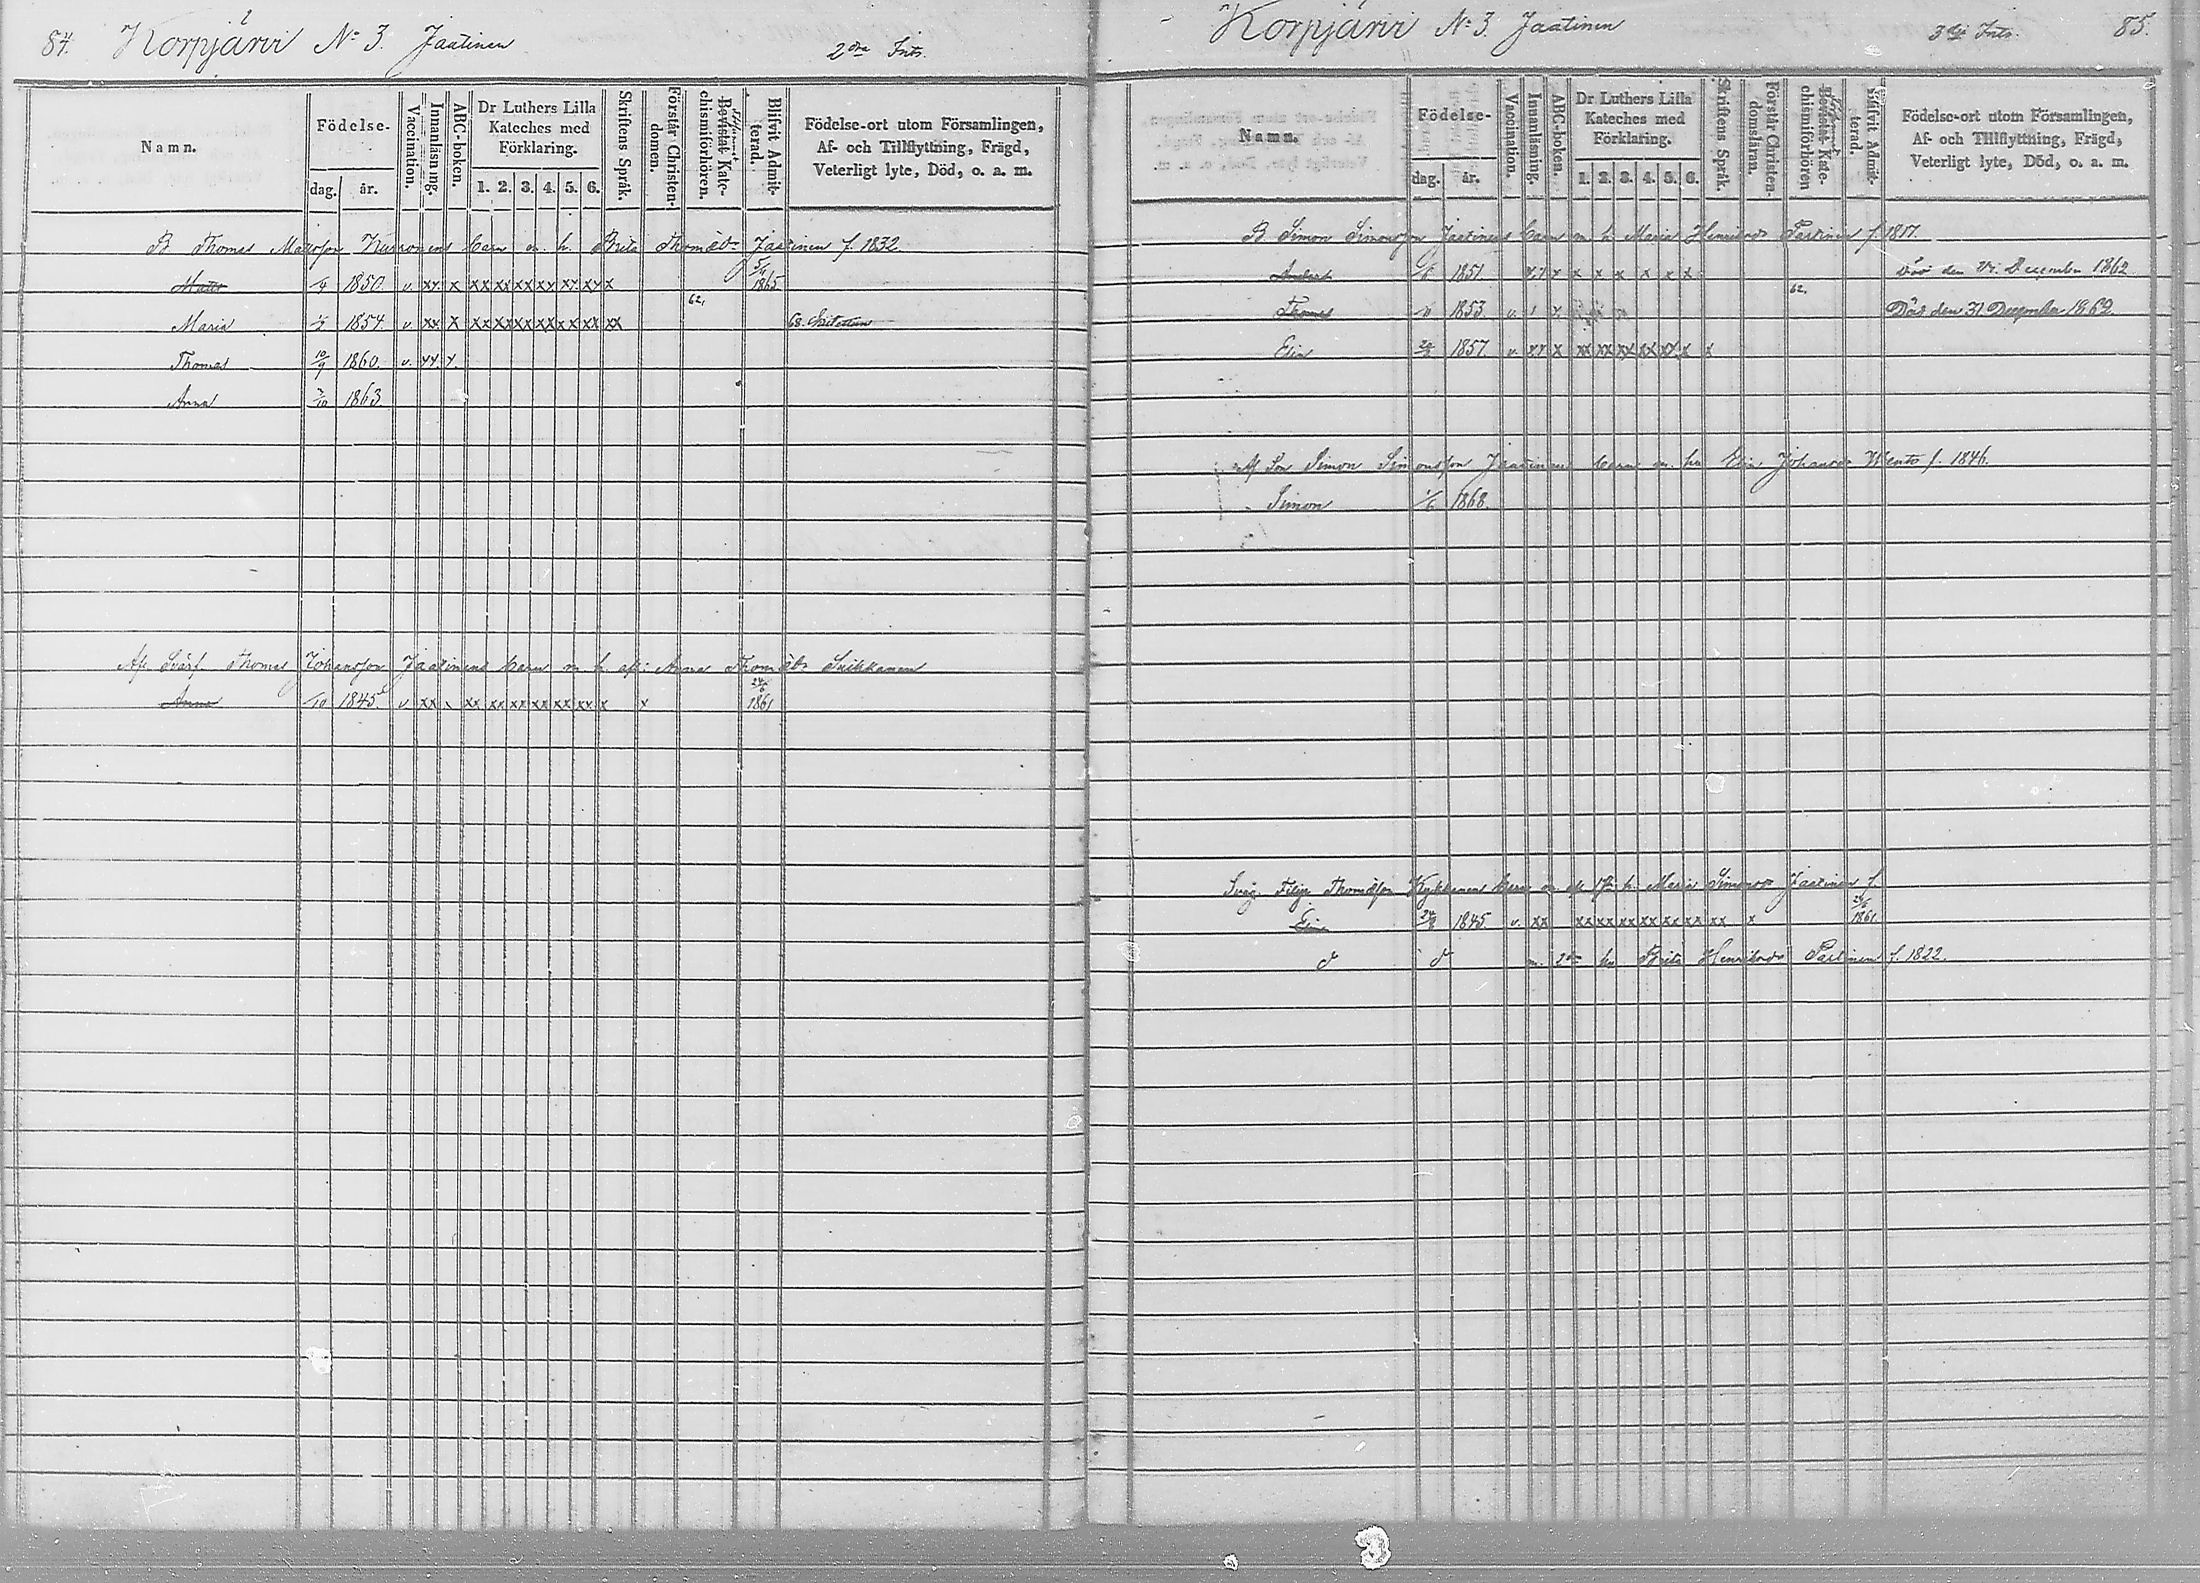 84. Korpjärvi No 3. Jaatinen 2dra Intr.
Namn.
Födelse-
dag. år.
Vaccination.
Innanläsning.
ABC-boken.
Dr Luthers Lilla
Kateches med
Förklaring.
1. 2. 3. 4. 5. 6.
Skriftens Språk.
Förstår Christen-
domen.
Bevistat Kate-
chismiförhören.
Blifvit Admit-
terad.
Födelse-ort utom Församlingen,
Af- och Tillflyttning, Frägd,
Veterligt lyte, Död, o. a. m.
B. Thomas Mattsson barn m. h. Brita Thomædr Jaatinen f. 1832.
Matts /4 1850. v. xx x xx xx xx xx xx xx x 5/11 1865
Maria 1/2 1854 v. xx x xx xx xx xx xx xx xx 62.
Thomas 10/9 1860. v. xx. x.
Anna 3/10 1863.
Afl. Svärf. Thomas Johansson Jaatinens barn m. h. afl: Anna Thomædr
Anna /10 1845. v xx x xx xx xx xx xx xx x x 24/6 1861
Korpjärvi No 3. Jaatinen 3dje Intr. 85.
Namn.
Födelse-
dag. år.
Vaccination.
Innanläsning.
ABC-boken.
Dr Luthers Lilla
Kateches med
Förklaring.
1. 2. 3. 4. 5. 6.
Skriftens Språk.
Förstår Christen-
domsläran.
Bevistat Kate-
chismiförhören
Blifvit Admit-
terad.
Födelse-ort utom Församlingen,
Af- och Tillflyttning, Frägd,
Veterligt lyte, Död, o. a. m.
B. Simon Simonsson Jaatinens barn m h Maria Henriksdr Partinen f. 1817.
Anders /6 1851. xx x x x x x x x Död den December 1862
Thomas 1853. v. 62. Död den 31 December 1862.
Elin 1857. v. xx x xx xx xx xx xx x x
Afl Son Simon Simonsson Jaatinens barn m. hu Elin Johansdr Wento f. 1846.
Simon 1/6 1868.
Svåg. Filip Thomasson Kykkänens barn m. afl. h. Maria Simonsdr Jaatinen f.
1845. v. xx xx xx xx xx xx xx xx x 24/6 1861.
d d m. 2dra hu Brita Henriksdr Partinen f. 1822.